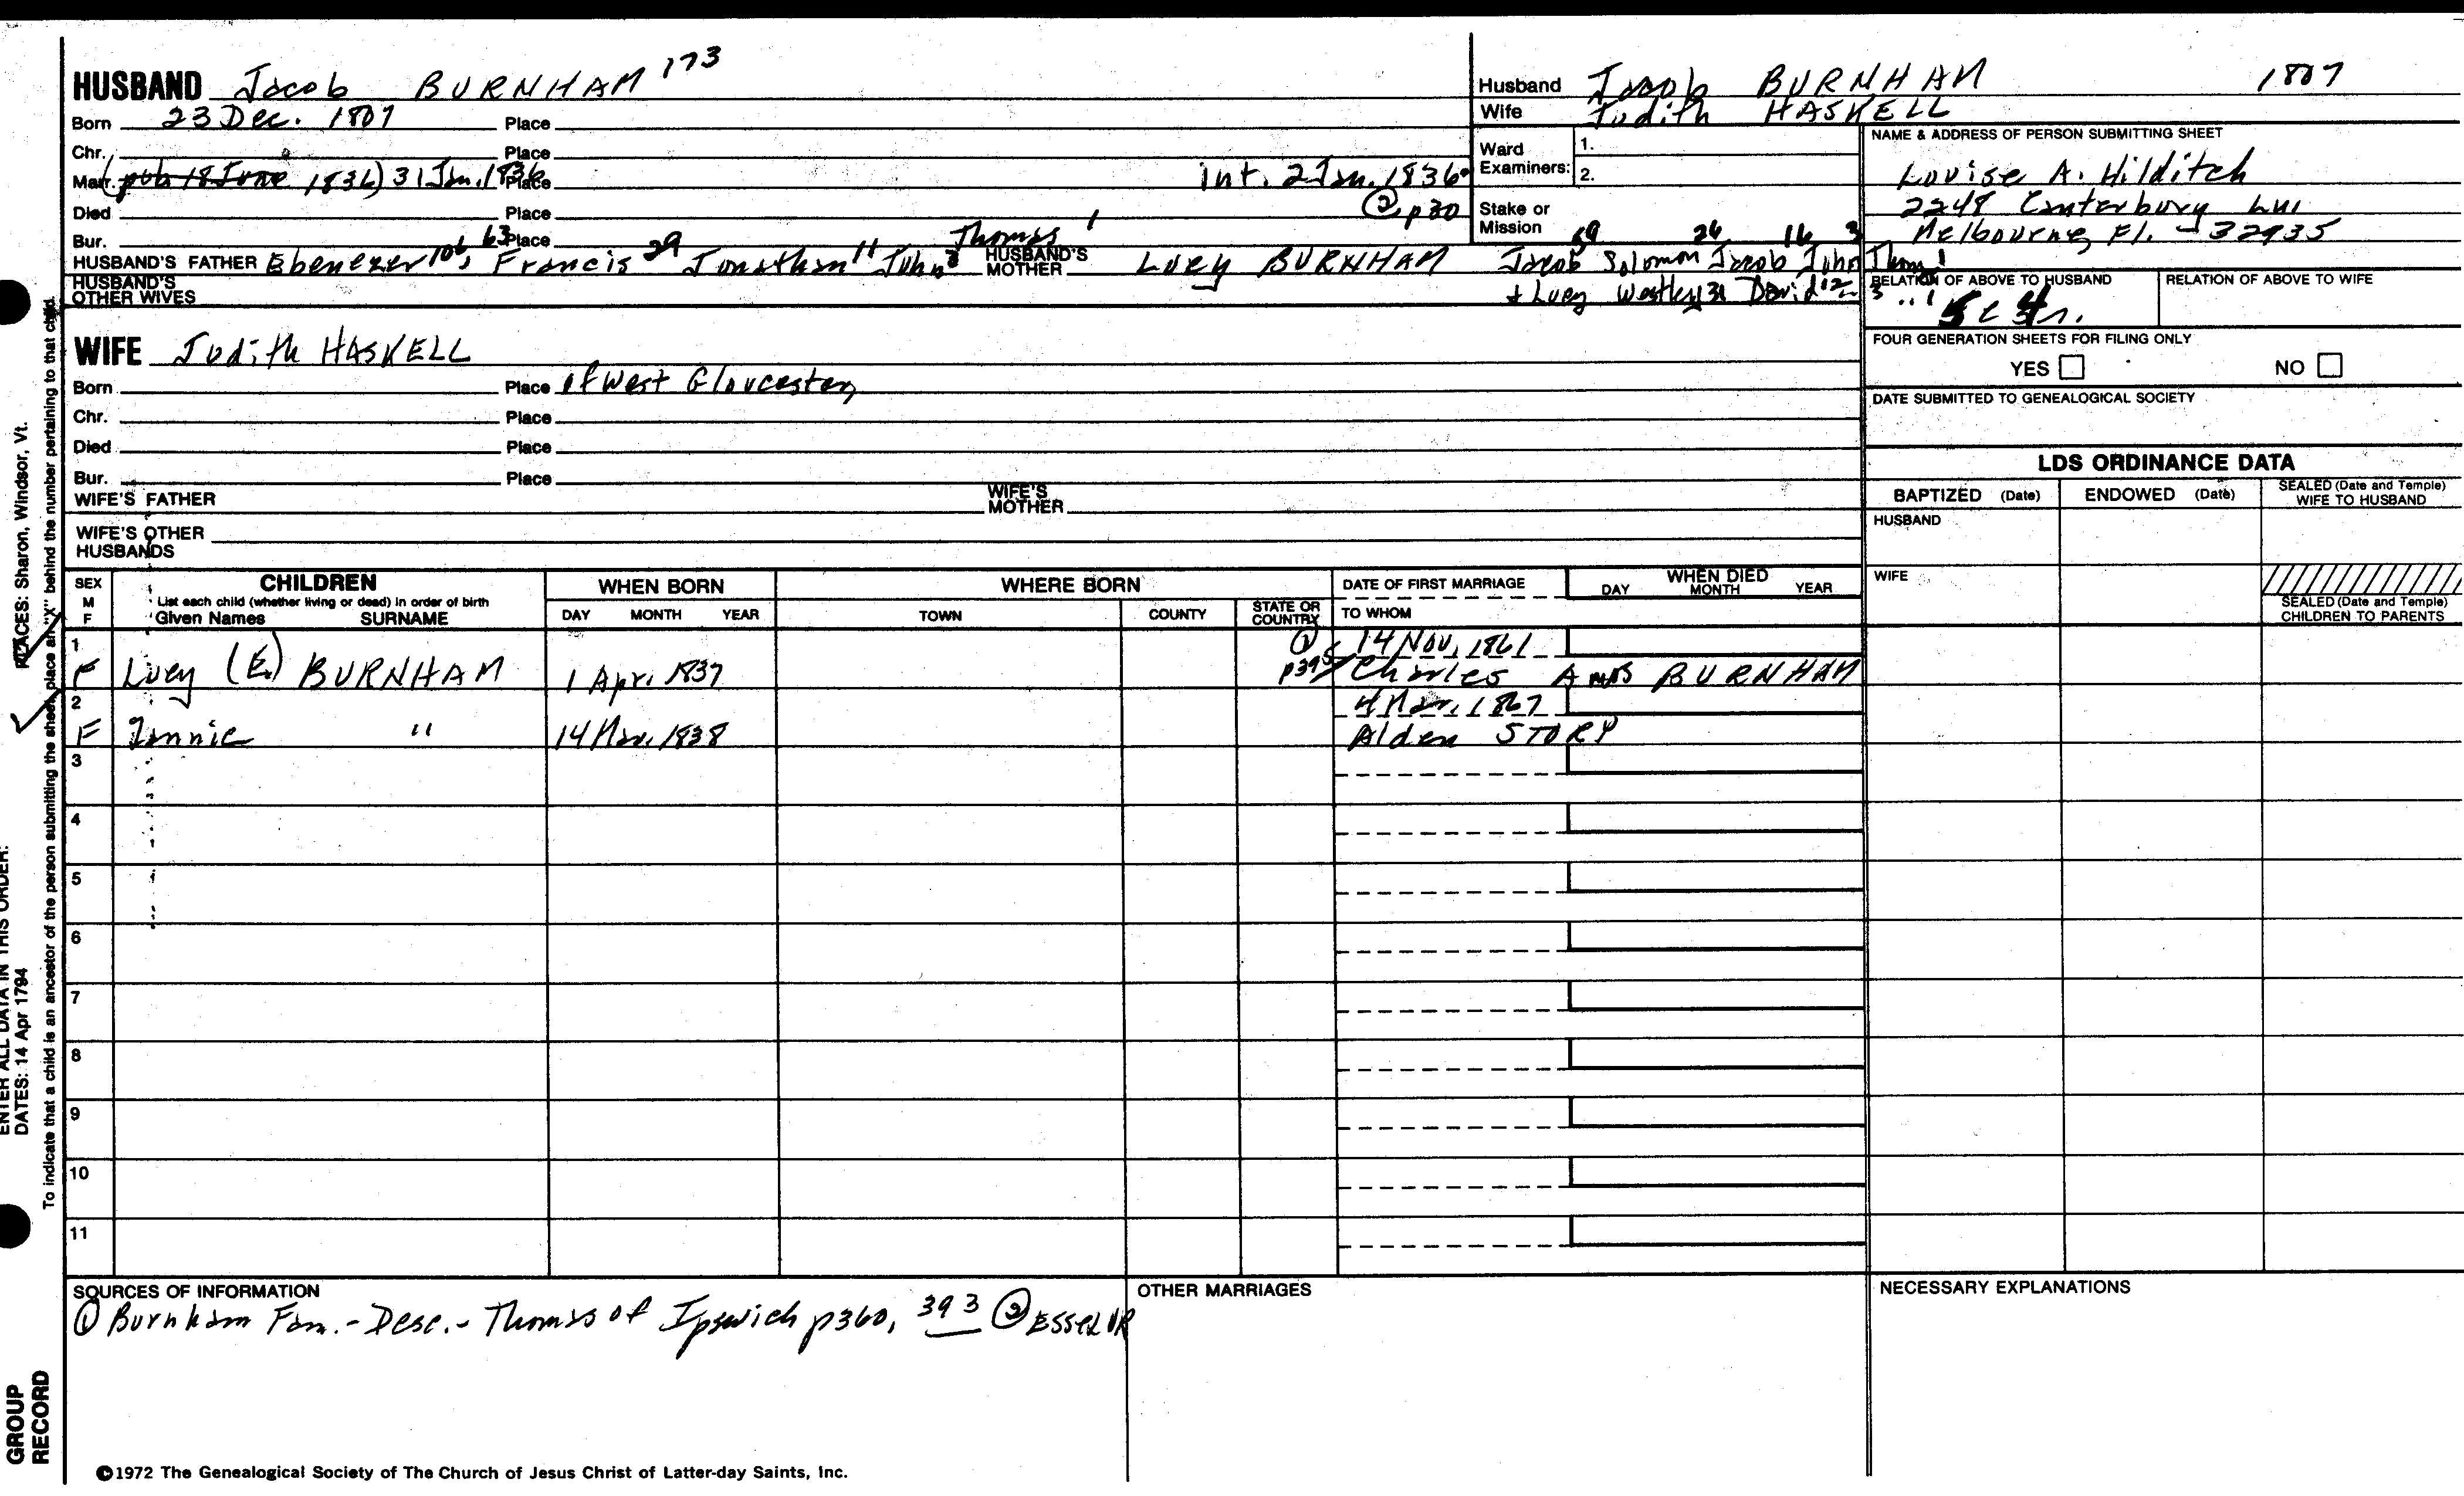 HUSBAND Jacob BURNHAM 173
Born 23 Dec. 1807 Place
Chr. Place
Marr. (pub 18 June 1836) 31 Jan. 1836 Place int. 2 Jan. 1836
Died Place ② p30
Bur. Place
HUSBAND'S FATHER Ebenezer 106, Francis 63 Jonathan 29 John 11 Thomas 1 HUSBAND'S MOTHER Lucy BURNHAM Jacob 69 Solomon 26 Jacob 16 John 3 Thom 1
HUSBAND'S OTHER WIVES + Lucy Westley 31 David 12
Husband Jacob BURNHAM 1807
Wife Judith HASKELL
Ward Examiners: 1.
2.
Stake or Mission
NAME & ADDRESS OF PERSON SUBMITTING SHEET
Louise A. Hilditch
2248 Canterbury Ln
Melbourne, Fl. 32935
RELATION OF ABOVE TO HUSBAND RELATION OF ABOVE TO WIFE
FOUR GENERATION SHEETS FOR FILING ONLY
YES NO
DATE SUBMITTED TO GENEALOGICAL SOCIETY
WIFE Judith HASKELL
Born Place of West Gloucester
Chr. Place
Died Place
Bur. Place
WIFE'S FATHER WIFE'S MOTHER
WIFE'S OTHER HUSBANDS
LDS ORDINANCE DATA
BAPTIZED (Date) ENDOWED (Date) SEALED (Date and Temple) WIFE TO HUSBAND
HUSBAND
WIFE
SEALED (Date and Temple) CHILDREN TO PARENTS
SEX M F
CHILDREN
List each child (whether living or dead) in order of birth
Given Names SURNAME
WHEN BORN
DAY MONTH YEAR
WHERE BORN
TOWN COUNTY STATE OR COUNTRY
DATE OF FIRST MARRIAGE
TO WHOM
WHEN DIED
DAY MONTH YEAR
1 14 Nov. 1861
F Lucy (E.) BURNHAM 1 Apr. 1837 Charles Amos BURNHAM
2 4 Mar. 1867
F " 14 Mar. 1838 Alden STORY
3
4
5
6
7
8
9
10
11
SOURCES OF INFORMATION
① Burnham Fam. - Desc. - Thomas of Ipswich p360, 393 ② Essex VR
OTHER MARRIAGES
NECESSARY EXPLANATIONS
©1972 The Genealogical Society of The Church of Jesus Christ of Latter-day Saints, Inc.
PLACES: Sharon, Windsor, Vt.
ENTER ALL DATA IN THIS ORDER:
DATES: 14 Apr 1794
To indicate that a child is an ancestor of the person submitting the sheet, place an "X" behind the number pertaining to that child.
GROUP
RECORD